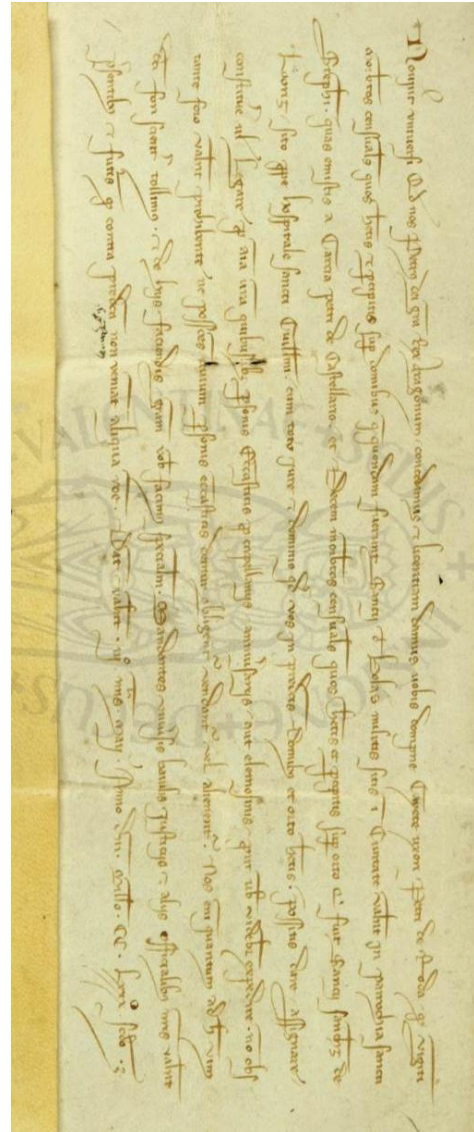 Novint univsi Qd nos Petrus dei gra Rex Aragonum. concedimus et licentiam damus vobis dompne uxori Petri de q viginti
morbetos censuales quos hetis et pcipitis sup domibus que quondam fuerunt Sancii militis sitis in Civitate valntie in parrochia sancti
Stephi. quas emistis a Garcia petri de Castellano. et Decem morbetos censuales quos hetis et pcipitis sup orto q fuit Sancii de
sito ppe hospitale sancti Guillmi. cum toto iure et dominio qd vos in predictis Domibus et orto hetis. possitis dare assignare
constitue vl legare p aia vra quibuslibet psonis Ecclasticis p capellaniis annivsariis aut elemosinis prout vob videbit expedire. no obs
tante foro valntie prohibente ne possessiones psonis ecclasticis dentur obligent vendant vel alienent. Nos eni quantum ad hec vim
dci fori scient tollimus. et de hiis faciendis gram vob facimus specialem. Mandantes univsis baiulis justiciis et aliis officialibus nris valntie
psentibus et futuris q contra predca non veniant aliqua roe. Dat valntie. Anno dni. Millo. CC. Lxxx scdo.